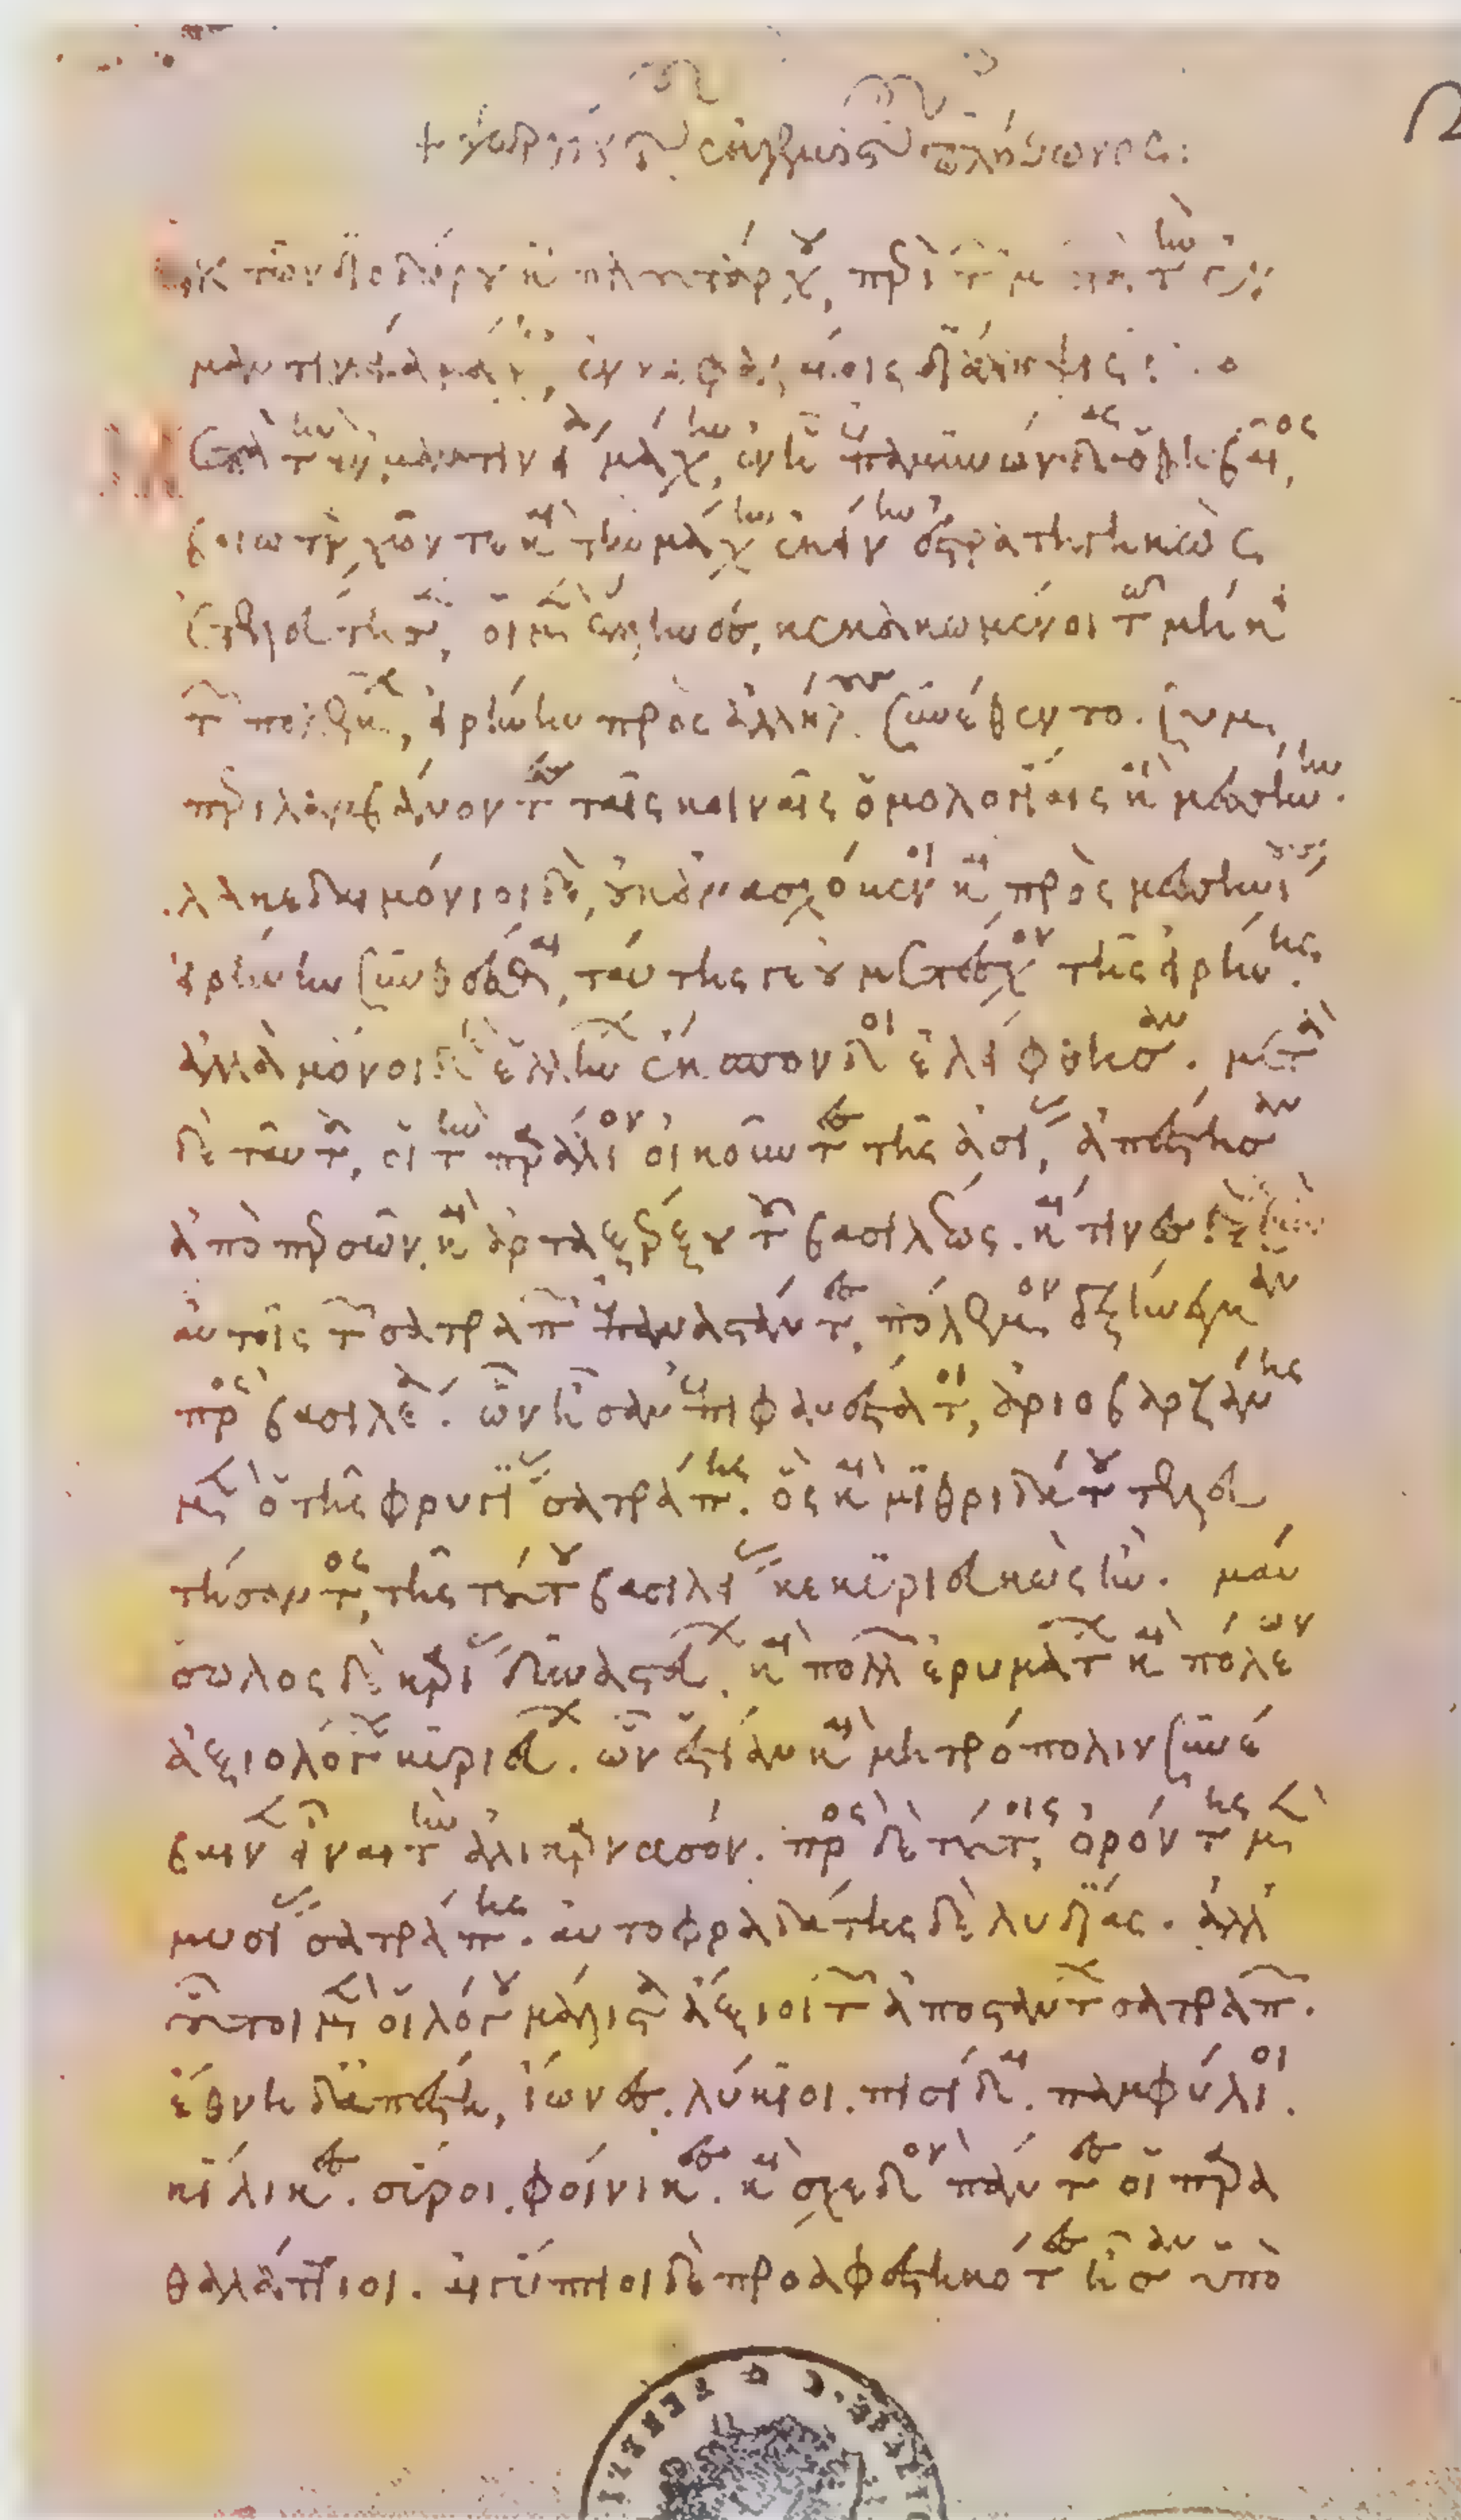 + γεωργίου τοῦ γεμιστοῦ πλήθωνος:
ἐκ τῶν διοδώρου καὶ πλουτάρχου, περὶ τῶν μετὰ τὴν ἐν
μαντινείᾳ μάχην, ἐν κεφαλαίοις διάληψις:
Μετὰ τὴν ἐν μαντινείᾳ μάχην, ἐν ᾗ ἐπαμεινώνδας ὁ θηβαῖος,
βοιωταρχῶν τε καὶ τὴν μάχην ἐκείνην ἐστρατηγηκὼς
ἐτελεύτησεν, οἱ μὲν ἕλληνες, κεκακωμένοι τῷ μήκει
τῶν πολέμων, εἰρήνην πρὸς ἀλλήλους συνέθεντο. συμ
περιλαμβάνοντες ταῖς κοιναῖς ὁμολογίαις καὶ μεσσηνίους.
λακεδαιμόνιοι δὲ, οὐκ ἀνασχόμενοι καὶ πρὸς μεσσηνίους
εἰρήνην συνθέσθαι, ταύτης γε οὐ μετέσχον τῆς εἰρήνης.
ἀλλὰ μόνοι δὴ ἑλλήνων ἔκσπονδοι ἐλείφθησαν. μετὰ
δὲ ταῦτα, οἱ τὴν παράλιον οἰκοῦντες τῆς ἀσίας, ἀπέστησαν
ἀπὸ περσῶν καὶ ἀρταξέρξου τοῦ βασιλέως. καί τινες σὺν
αὐτοῖς τῶν σατραπῶν ἐπαναστάντες, πόλεμον ἐξήνεγκαν
πρὸς βασιλέα. ὧν ἦσαν ἐπιφανέστατοι, ἀριοβαρζάνης
μὲν ὁ τῆς φρυγίας σατράπης. ὃς καὶ μιθριδάτου τελευ
τήσαντος, τῆς τούτου βασιλείας κεκυριευκὼς ἦν. μαύ
σωλος δὲ καρίας δυνάστευων, καὶ πολλῶν ἐρυμάτων καὶ πόλεων
ἀξιολόγων κυριεύων. ὧν ἑστίαν καὶ μητρόπολιν συνέ
βαινεν εἶναι τὴν ἁλικαρνασόν. πρὸς δὲ τούτοις, ὀρόντης μὲν
μυσίας σατράπης. αὐτοφραδάτης δὲ λυδίας. ἀλλ'
οὗτοι μὲν οἱ λόγου μάλιστα ἄξιοι τῶν ἀποστάντων σατραπῶν.
ἔθνη δὲ ἀπέστη, ἴωνες. λύκιοι. πισίδαι. παμφύλιοι.
κίλικες. σύροι. φοίνικες. καὶ σχεδὸν πάντες οἱ παρα
θαλάττιοι. αἰγύπτιοι δὲ προαφεστηκότες ἦσαν ὑπὸ